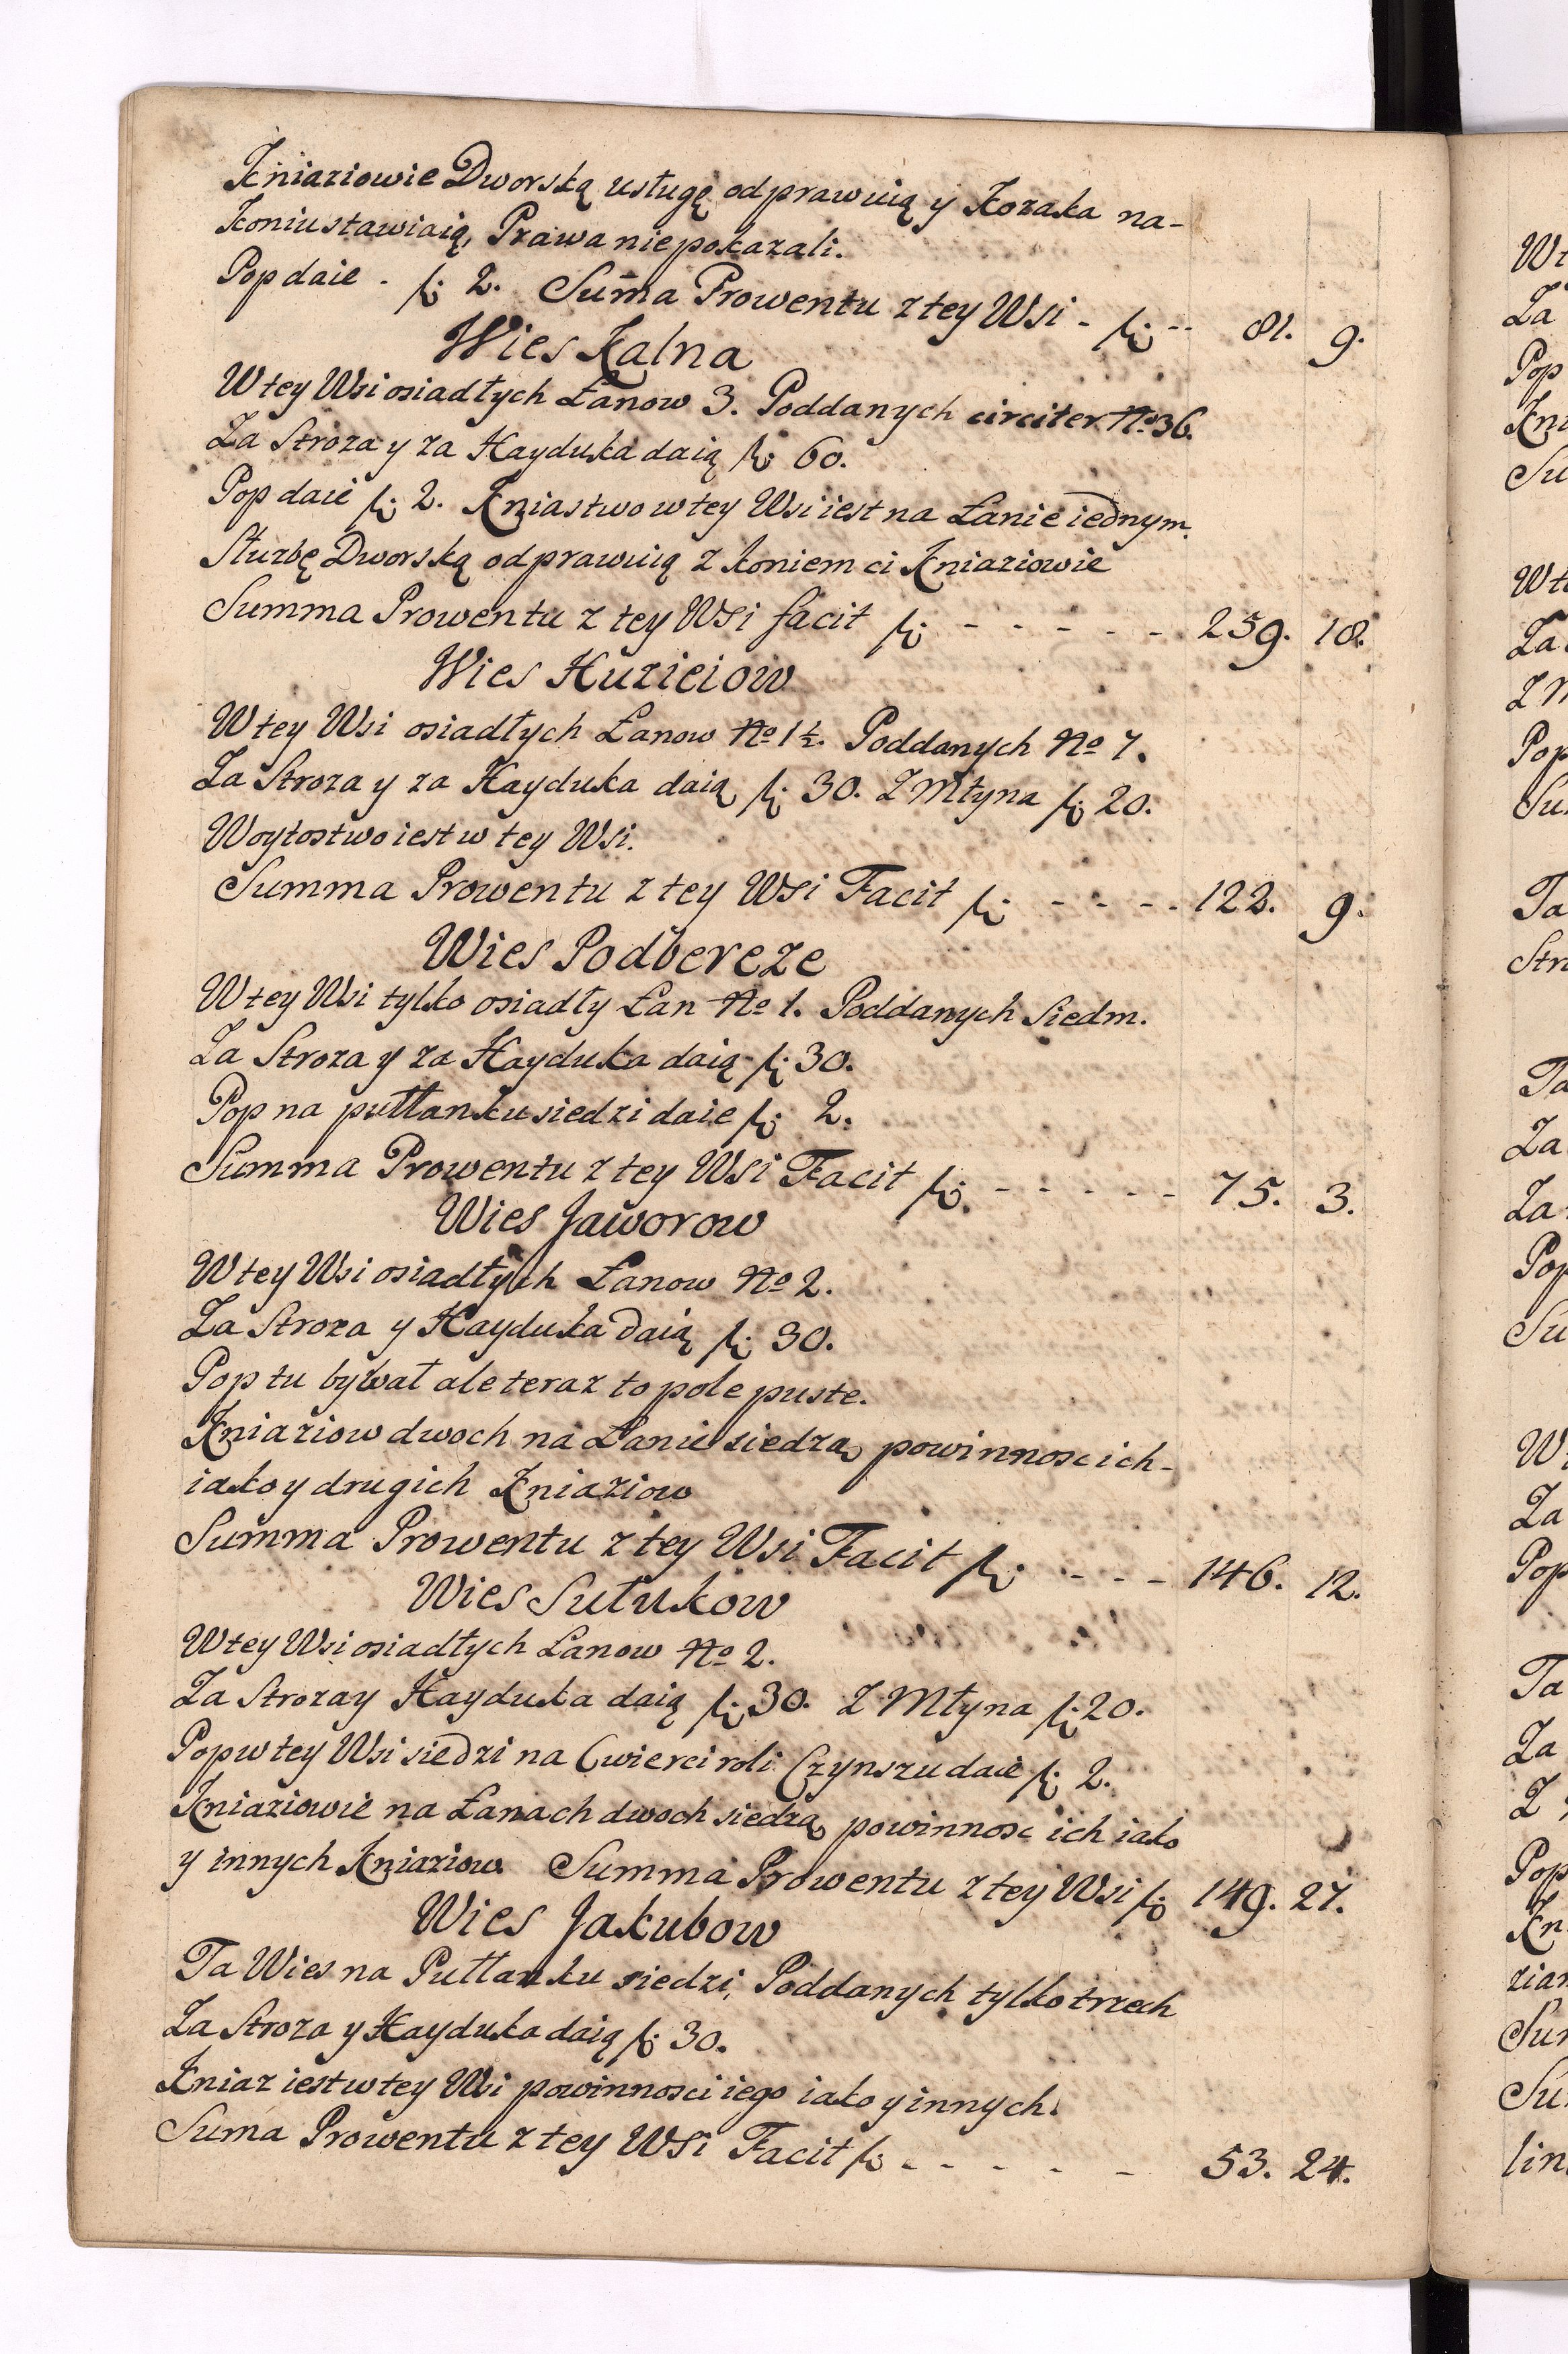 Kniaziowie Dworską usługę odprawuią y Kozaka na-
Koniu stawiaią, Prawa nie pokazali.
Pop daie - fl: 2. Suma Prowentu z tey Wsi - fl: -- 81. 9.
Wies Kalna
W tey Wsi osiadłych Łanow 3. Poddanych circiter No 36.
Za Stroza y za Hayduka daią fl: 60.
Pop daie fl: 2. Kniastwo w tey Wsi iest na Łanie iednym.
Słuzbę Dworską odprawuią z koniem ci Kniaziowie
Summa Prowentu z tey Wsi facit fl: - - - - - 259. 18.
Wies Huzieiow
W tey Wsi osiadłych Łanow No 1½. Poddanych No 7.
Za Stroza y za Hayduka daią fl: 30. Z Młyna fl: 20.
Woytostwo iest w tey Wsi.
Summa Prowentu z tey Wsi Facit fl: - - - - 122. 9.
Wies Podbereze
W tey Wsi tylko osiadły Łan No 1. Poddanych Siedm.
Za Stroza y za Hayduka daią fl: 30.
Pop na pułłanku siedzi daie fl: 2.
Summa Prowentu z tey Wsi Facit fl: - - - - - 75. 3.
Wies Jaworow
W tey Wsi osiadłych Łanow No 2.
Za Stroza y Hayduka daią fl: 30.
Pop tu bywał ale teraz to pole puste.
Kniaziow dwoch na Łanie siedzą powinnosc ich-
iako y drugich Kniaziow
Summa Prowentu z tey Wsi Facit fl: - - - 146. 12.
Wies Sulukow
W tey Wsi osiadłych Łanow No 2.
Za Stroza y Hayduka daią fl: 30. Z Młyna fl: 20.
Pop w tey Wsi siedzi na Cwierci roli Czynszu daie fl: 2.
Kniaziowie na Łanach dwoch siedzą powinnosc ich iako
y innych Kniaziow Summa Prowentu z tey Wsi fl: 149. 27.
Wies Jakubow
Ta Wies na Pułłanku siedzi, Poddanych tylko trzech
Za Stroza y Hayduka daią fl: 30.
Kniaz iest w tey Wsi powinnosci iego iako y innych.
Suma Prowentu z tey Wsi Facit fl: - - - - - 53. 24.